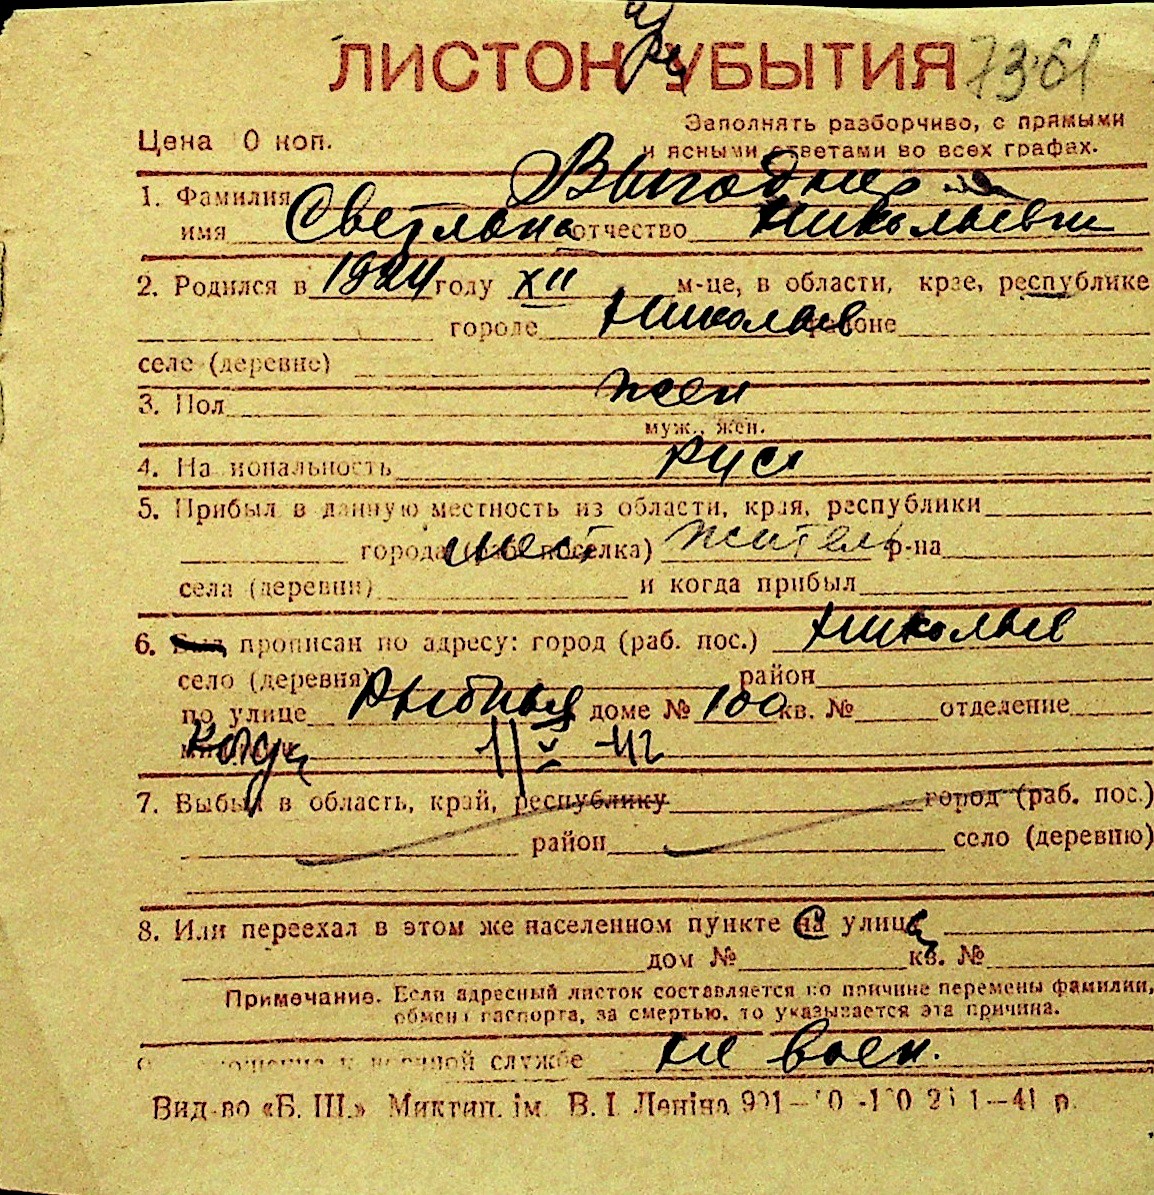 ЛИСТОК УБЫТИЯ 73·61
Цена 10 коп.
Заполнять разборчиво, с прямыми
и ясными ответами во всех графах.
1. Фамилия Выгоднер
имя Светлана отчество Николаевн
2. Родился в 1924 году XII м-це, в области, крае, республике
городе Николаев районе
селе (деревне)
3. Пол жен
муж., жен.
4. Национальность русс
5. Прибыл в данную местность из области, края, республики
города (раб. поселка) мест житель р-на
села (деревни) и когда прибыл
6. Был прописан по адресу: город (раб. пос.) Николаев
село (деревня) район
по улице Рыбная доме № 100 кв. № отделение
когда 11 V 42
7. Выбыл в область, край, республику город (раб. пос.)
район село (деревню)
8. Или переехал в этом же населенном пункте на улицу
дом № кв. №
Примечание. Если адресный листок составляется по причине перемены фамилии,
обмена паспорта, за смертью, то указывается эта причина.
Отношение к военной службе не воен.
Вид-во «Б. Ш.» Миктип. ім. В. І. Леніна